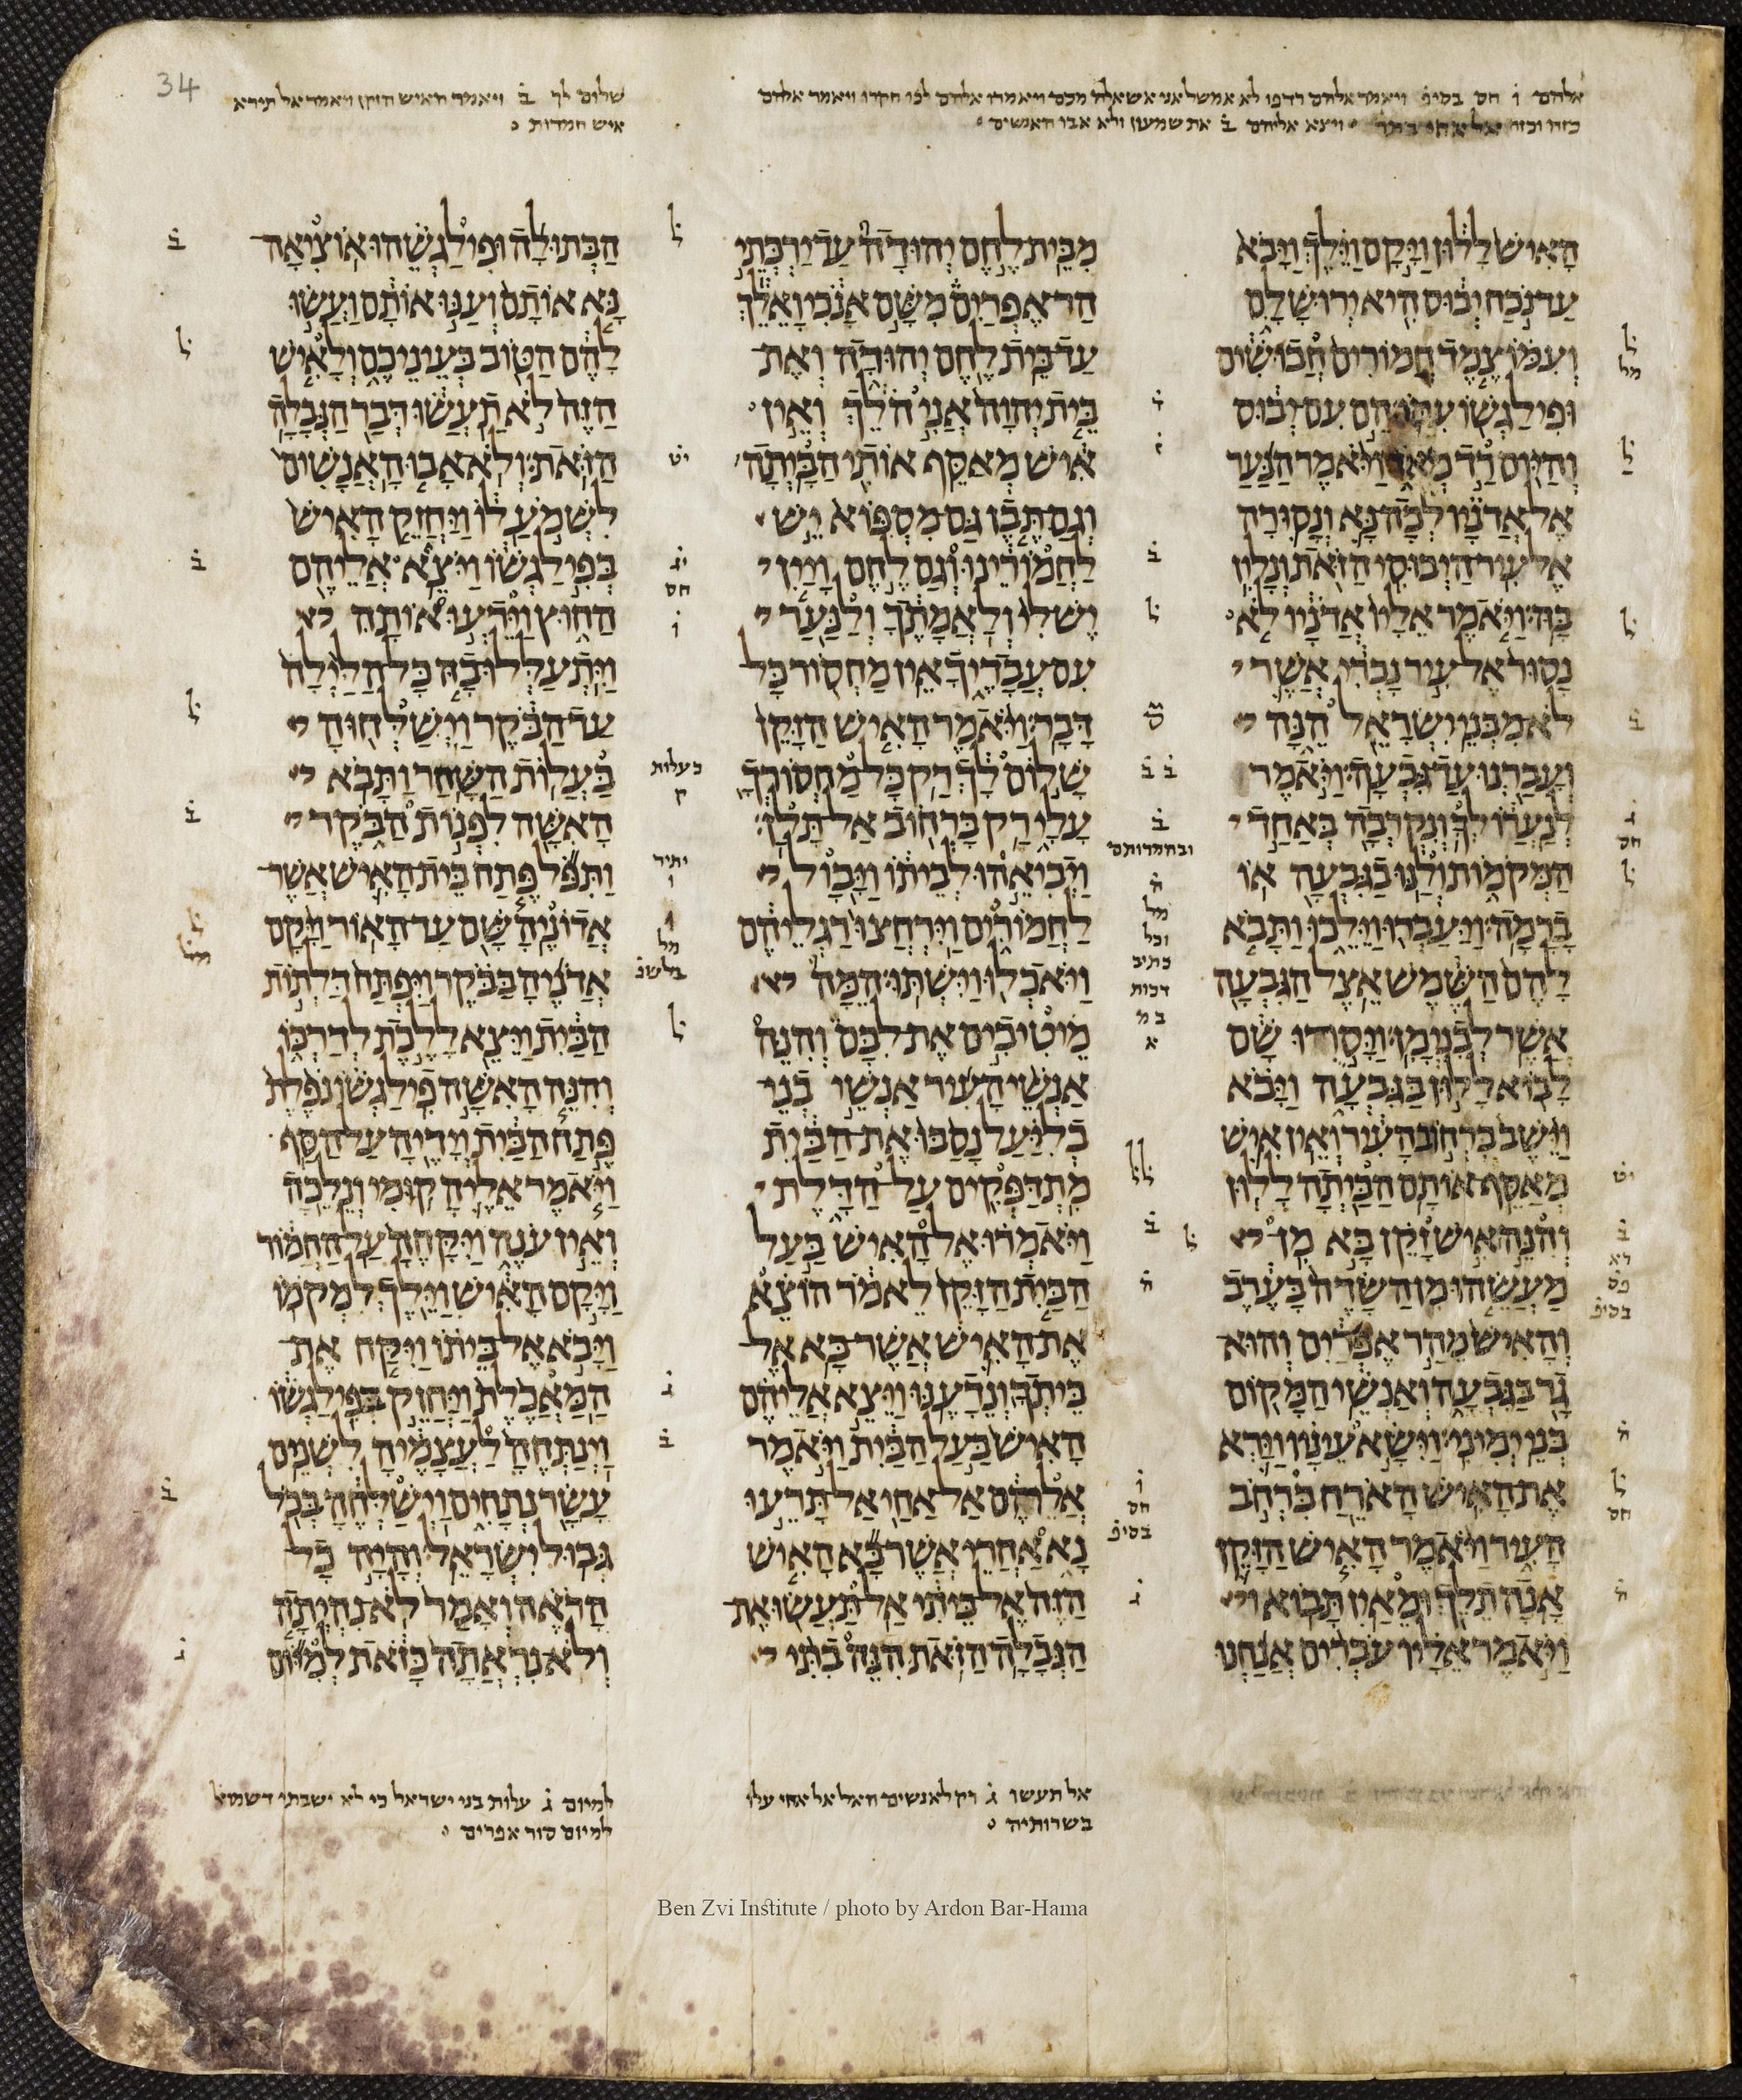 אלהם ו חס בסיפ ויאמר אלהם רדפו לא אמשל אני אשאלה מכם ויאמרו אלהם לכו חקרו ויאמר אלהם
כזה וכזה אל אחי ויצא אליהם ב את שמעון ולא אבו האנשים
שלום לך ב ויאמר האיש הזקן ויאמר אל תירא
איש חמדות
האיש ללון ויקם וילך ויבא
עד נכח יבוס היא ירושלם
ועמו צמד חמורים חבושים
ופילגשו עמו הם עם יבוס
והיום רד מאד ויאמר הנער
אל אדניו לכה נא ונסורה
אל עיר היבוסי הזאת ונלין
בה ויאמר אליו אדניו לא
נסור אל עיר נכרי אשר
לא מבני ישראל הנה
ועברנו עד גבעה ויאמר
לנערו לך ונקרבה באחד
המקמות ולנו בגבעה או
ברמה ויעברו וילכו ותבא
להם השמש אצל הגבעה
אשר לבנימן ויסרו שם
לבוא ללון בגבעה ויבא
וישב ברחוב העיר ואין איש
מאסף אותם הביתה ללון
והנה איש זקן בא מן
מעשהו מן השדה בערב
והאיש מהר אפרים והוא
גר בגבעה ואנשי המקום
בני ימיני וישא עיניו וירא
את האיש הארח ברחב
העיר ויאמר האיש הזקן
אנה תלך ומאין תבוא
ויאמר אליו עברים אנחנו
מבית לחם יהודה עד ירכתי
הר אפרים משם אנכי ואלך
עד בית לחם יהודה ואת
בית יהוה אני הלך ואין
איש מאסף אותי הביתה
וגם תבן גם מספוא יש
לחמורינו וגם לחם ויין
יש לי ולאמתך ולנער
עם עבדיך אין מחסור כל
דבר ויאמר האיש הזקן
שלום לך רק כל מחסורך
עלי רק ברחוב אל תלן
ויביאהו לביתו ויבול
לחמורים וירחצו רגליהם
ויאכלו וישתו המה
מיטיבים את לבם והנה
אנשי העיר אנשי בני
בליעל נסבו את הבית
מתדפקים על הדלת
ויאמרו אל האיש בעל
הבית הזקן לאמר הוצא
את האיש אשר בא אל
ביתך ונדענו ויצא אליהם
האיש בעל הבית ויאמר
אלהם אל אחי אל תרעו
נא אחרי אשר בא האיש
הזה אל ביתי אל תעשו את
הנבלה הזאת הנה בתי
הבתולה ופילגשהו אוציאה
נא אותם וענו אותם ועשו
להם הטוב בעיניכם ולאיש
הזה לא תעשו דבר הנבלה
הזאת ולא אבו האנשים
לשמע לו ויחזק האיש
בפילגשו ויצא אליהם
החוץ וידעו אותה
ויתעללו בה כל הלילה
עד הבקר וישלחוה
בעלות השחר ותבא
האשה לפנות הבקר
ותפל פתח בית האיש אשר
אדוניה שם עד האור ויקם
אדניה בבקר ויפתח דלתות
הבית ויצא ללכת לדרכו
והנה האשה פילגשו נפלת
פתח הבית וידיה על הסף
ויאמר אליה קומי ונלכה
ואין ענה ויקחה על החמור
ויקם האיש וילך למקמו
ויבא אל ביתו ויקח את
המאכלת ויחזק בפילגשו
וינתחה לעצמיה לשנים
עשר נתחים וישלחה בכל
גבול ישראל והיה כל
הראה ואמר לא נהיתה
ולא נראתה כזאת למיום
אל תעשו ג רק לאנשים האל אל אחי עלו
בשרותיה
למיום ג עלות בני ישראל כי לא ישבתי דשמואל
למיום סור אפרים
34
Ben Zvi Institute / photo by Ardon Bar-Hama